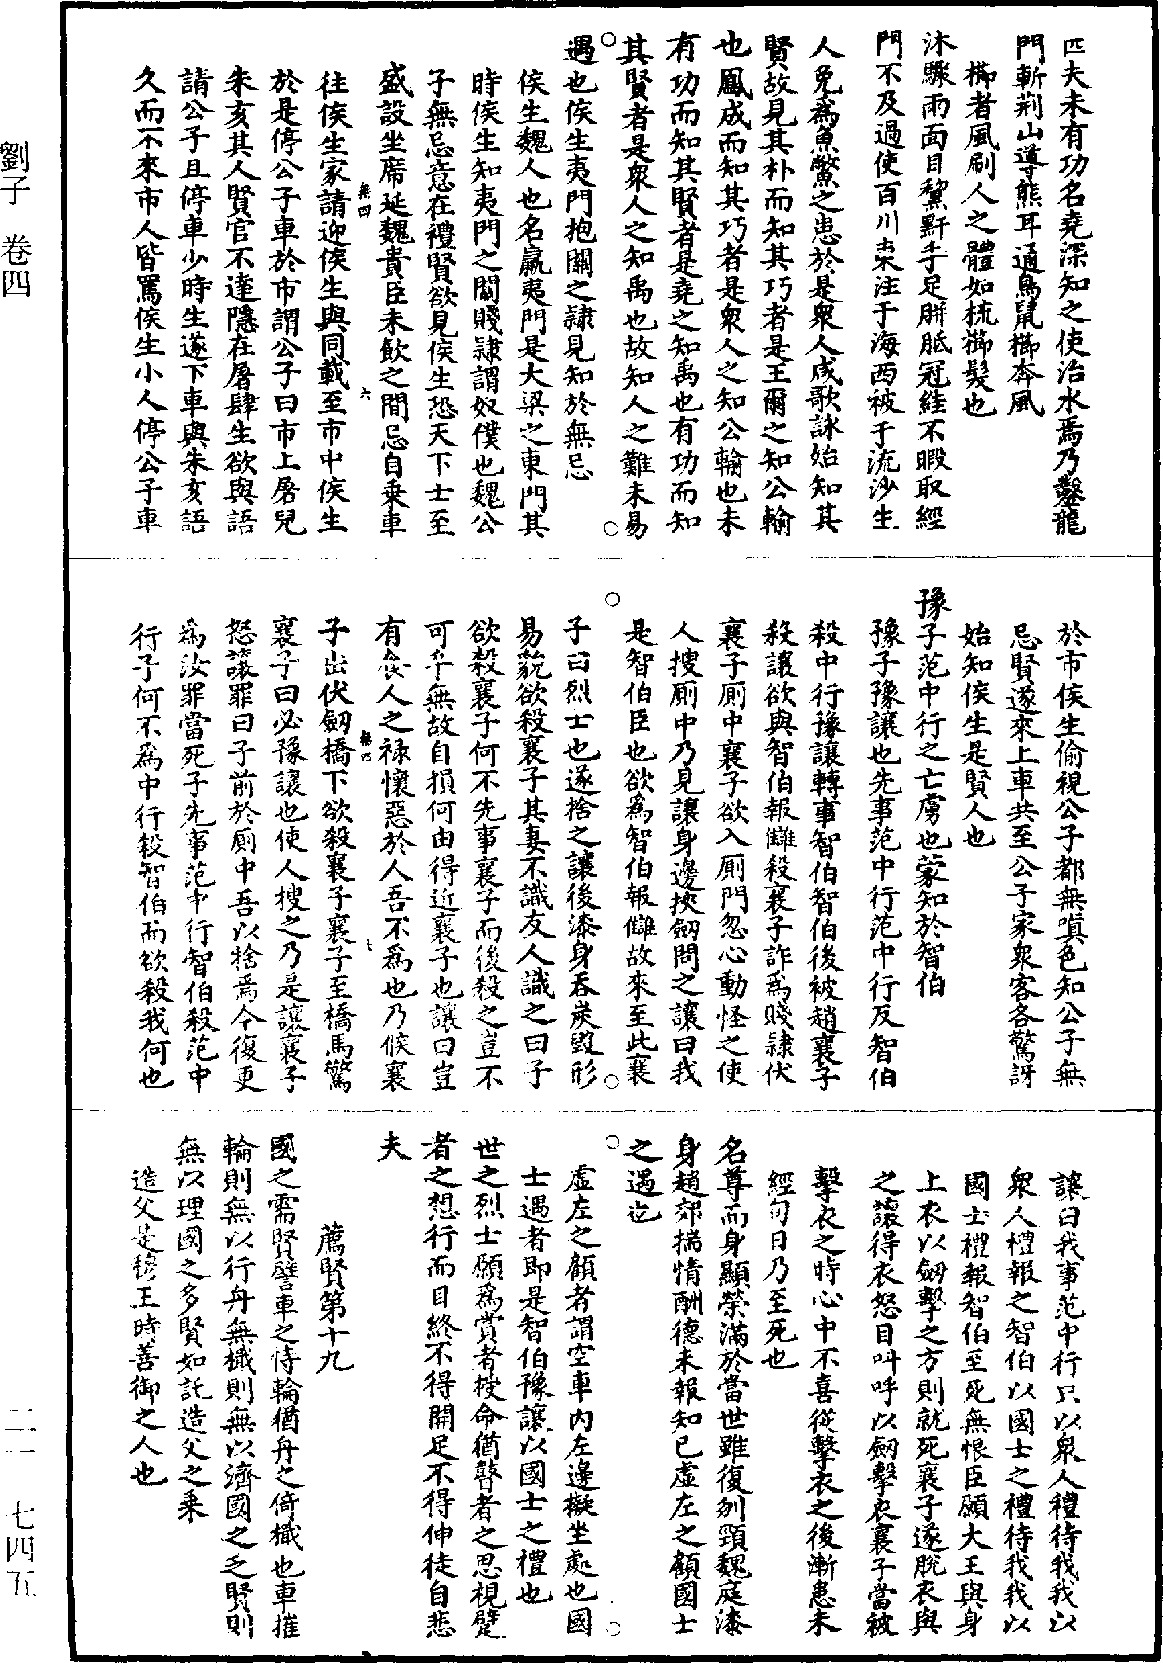 匹夫未有功名堯深知之使治水焉乃鑿龍
門斬荆山導熊耳通鳥鼠櫛奔風
櫛者風刷人之體如梳櫛髮也
沐驟雨面目黧黚手足胼胝冠絓不暇取經
門不及過使百川東注于海西被于流沙生
人免爲魚鱉之患於是衆人咸歌詠始知其
賢故見其朴而知其巧者是王爾之知公輸
也鳳成而知其巧者是衆人之知公輸也未
有功而知其賢者是堯之知禹也有功而知
其賢者是衆人之知禹也故知人之難未易
遇也侯生夷門抱關之隷見知於無忌
侯生魏人也名嬴夷門是大梁之東門其
時侯生知夷門之關賤隷謂奴僕也魏公
子無忌意在禮賢欲見侯生恐天下士至
盛設坐席延魏貴臣未飲之間忌自乗車
卷四
六
往侯生家請迎侯生與同載至市中侯生
於是停公子車於市謂公子曰市上屠兒
朱亥其人賢官不達隱在屠肆生欲與語
請公子且停車少時生遂下車與朱亥語
久而不來市人皆罵侯生小人停公子車
於市侯生偷視公子都無嗔色知公子無
忌賢遂來上車共至公子家衆客各驚訝
始知侯生是賢人也
豫子范中行之亡虜也蒙知於智伯
豫子豫讓也先事范中行范中行反智伯
殺中行豫讓轉事智伯智伯後被趙襄子
殺讓欲與智伯報讎殺襄子詐爲賤隷伏
襄子厠中襄子欲入厠門忽心動怪之使
人搜厠中乃見讓身邊挾劒問之讓曰我
是智伯臣也欲爲智伯報讎故來至此襄
子曰烈士也遂捨之讓後漆身吞炭毁形
易貌欲殺襄子其妻不識友人識之曰子
欲殺襄子何不先事襄子而後殺之豈不
可乎無故自損何由得近襄子也讓曰豈
有食人之禄懷惡於人吾不爲也乃候襄
卷四
七
子出伏劒橋下欲殺襄子襄子至橋馬驚
襄子曰必豫讓也使人搜之乃是讓襄子
怒讓罪曰子前於厠中吾以捨焉今復更
爲汝罪當死子先事范中行智伯殺范中
行子何不爲中行殺智伯而欲殺我何也
讓曰我事范中行只以衆人禮待我我以
衆人禮報之智伯以國士之禮待我我以
國士禮報智伯至死無恨臣願大王與身
上衣以劒擊之方則就死襄子遂脫衣與
之讓得衣怒目叫呼以劒擊衣襄子當被
擊衣之時心中不喜從擊衣之後漸患未
經旬日乃至死也
名尊而身顯榮滿於當世雖復刎頸魏庭漆
身趙郊揣情酬德未報知已虛左之顧國士
之遇也
虛左之顧者謂空車內左邊擬坐處也國
士遇者即是智伯豫讓以國士之禮也
世之烈士願爲賞者授命猶瞽者之思視躄
者之想行而目終不得開足不得伸徒自悲
夫
薦賢第十九
國之需賢譬車之恃輪猶舟之倚檝也車摧
輪則無以行舟無檝則無以濟國之乏賢則
無以理國之多賢如託造父之乗
造父是穆王時善御之人也
劉子　卷四
二一　七四五